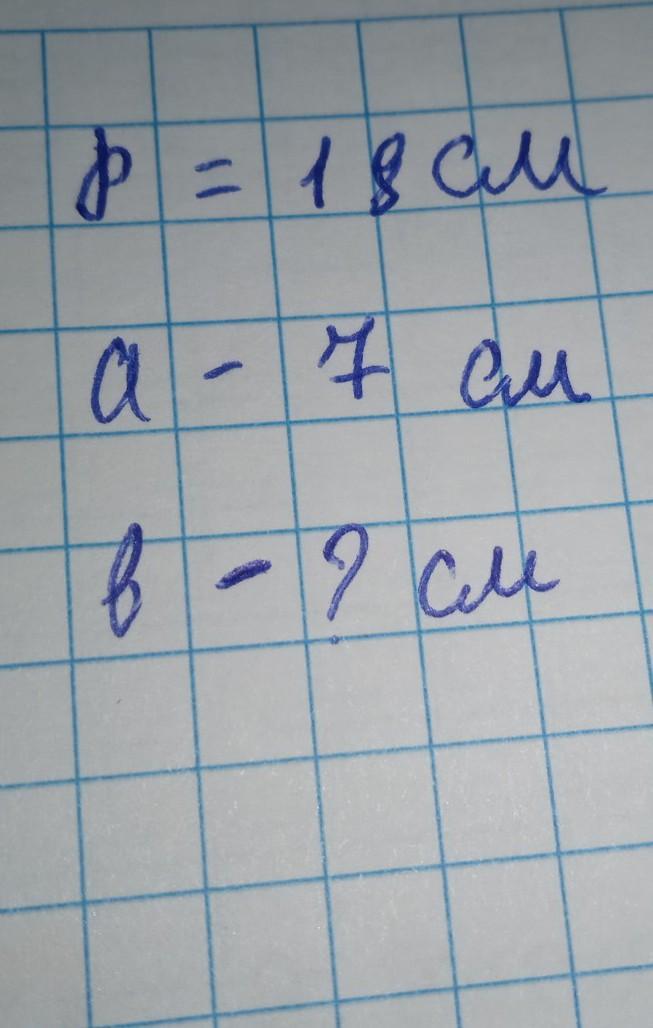 р = 18 см
а - 7 см
в - ? см